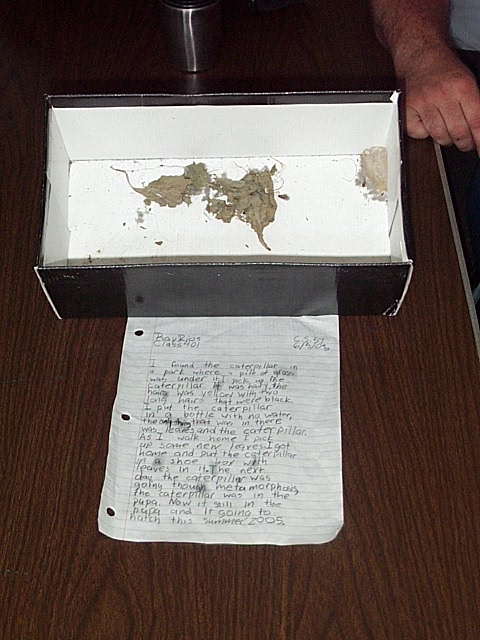 Class 401
I found the caterpillar in
a park where a pile of grass
was under it I pick up the
caterpillar. It was hairy, the
hairs was yellow with two
long hairs that were black.
I put the caterpillar
in a bottle with no water,
the only thing that was in there
was leaves and the caterpillar.
As I walk home I pick
up some new leaves. I got
home and put the caterpillar
in a shoe box with
leaves in it. The next
day the caterpillar was
going though metamorphosis,
the caterpillar was in the
pupa. Now it still in the
pupa and it going to
hatch this summer 2005.